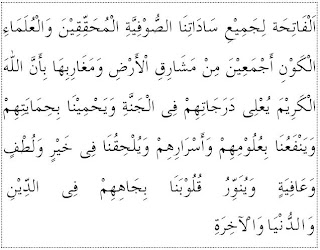 اَلْفَاتِحَة لِجَمِيْعِ سَادَاتِنَا الصُّوْفِيَّةِ الْمُحَقِّقِيْنَ وَالْعُلَمَاءِ
الْكَوْنِ أَجْمَعِيْنَ مِنْ مَشَارِقِ الْأَرْضِ وَمَغَارِبِهَا بِأَنَّ اللهَ
الْكَرِيْمَ يُعْلِى دَرَجَاتِهِمْ فِى الْجَنَّةِ وَيَحْمِيْنَا بِحِمَايَتِهِمْ
وَيَنْفَعُنَا بِعُلُوْمِهِمْ وَأَسْرَارِهِمْ وَيُلْحِقُنَا فِى خَيْرٍ وَلُطْفٍ
وَعَافِيَةٍ وَيُنَوِّرُ قُلُوْبَنَا بِجَاهِهِمْ فِى الدِّيْنِ
وَالدُّنْيَا وَالْآخِرَةِ